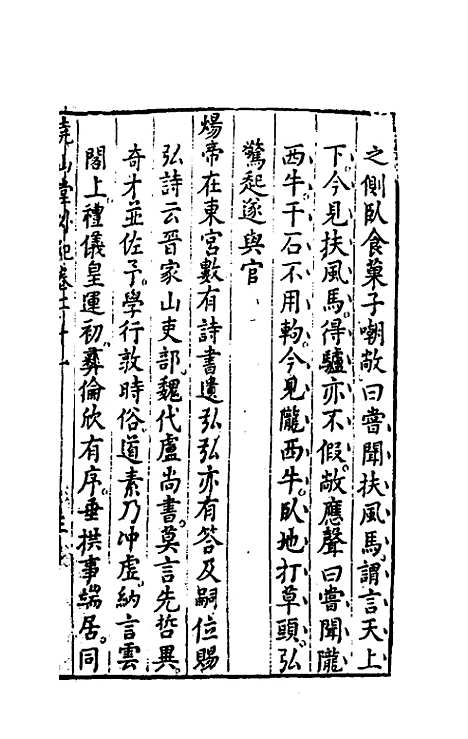 之側臥食菓子嘲敞曰嘗聞扶風馬謂言天上
下今見扶風馬得驢亦不假敞應聲曰嘗聞隴
西牛千石不用軥今見隴西牛臥地打草頭弘
驚起遂與官
煬帝在東宮數有詩書遺弘弘亦有答及嗣位賜
弘詩云晉家山吏部魏代盧尚書莫言先哲異
奇才並佐予學行敦時俗道素乃冲虛納言雲
閣上禮儀皇運初彞倫欣有序垂拱事端居同
堯山堂外紀卷二十一